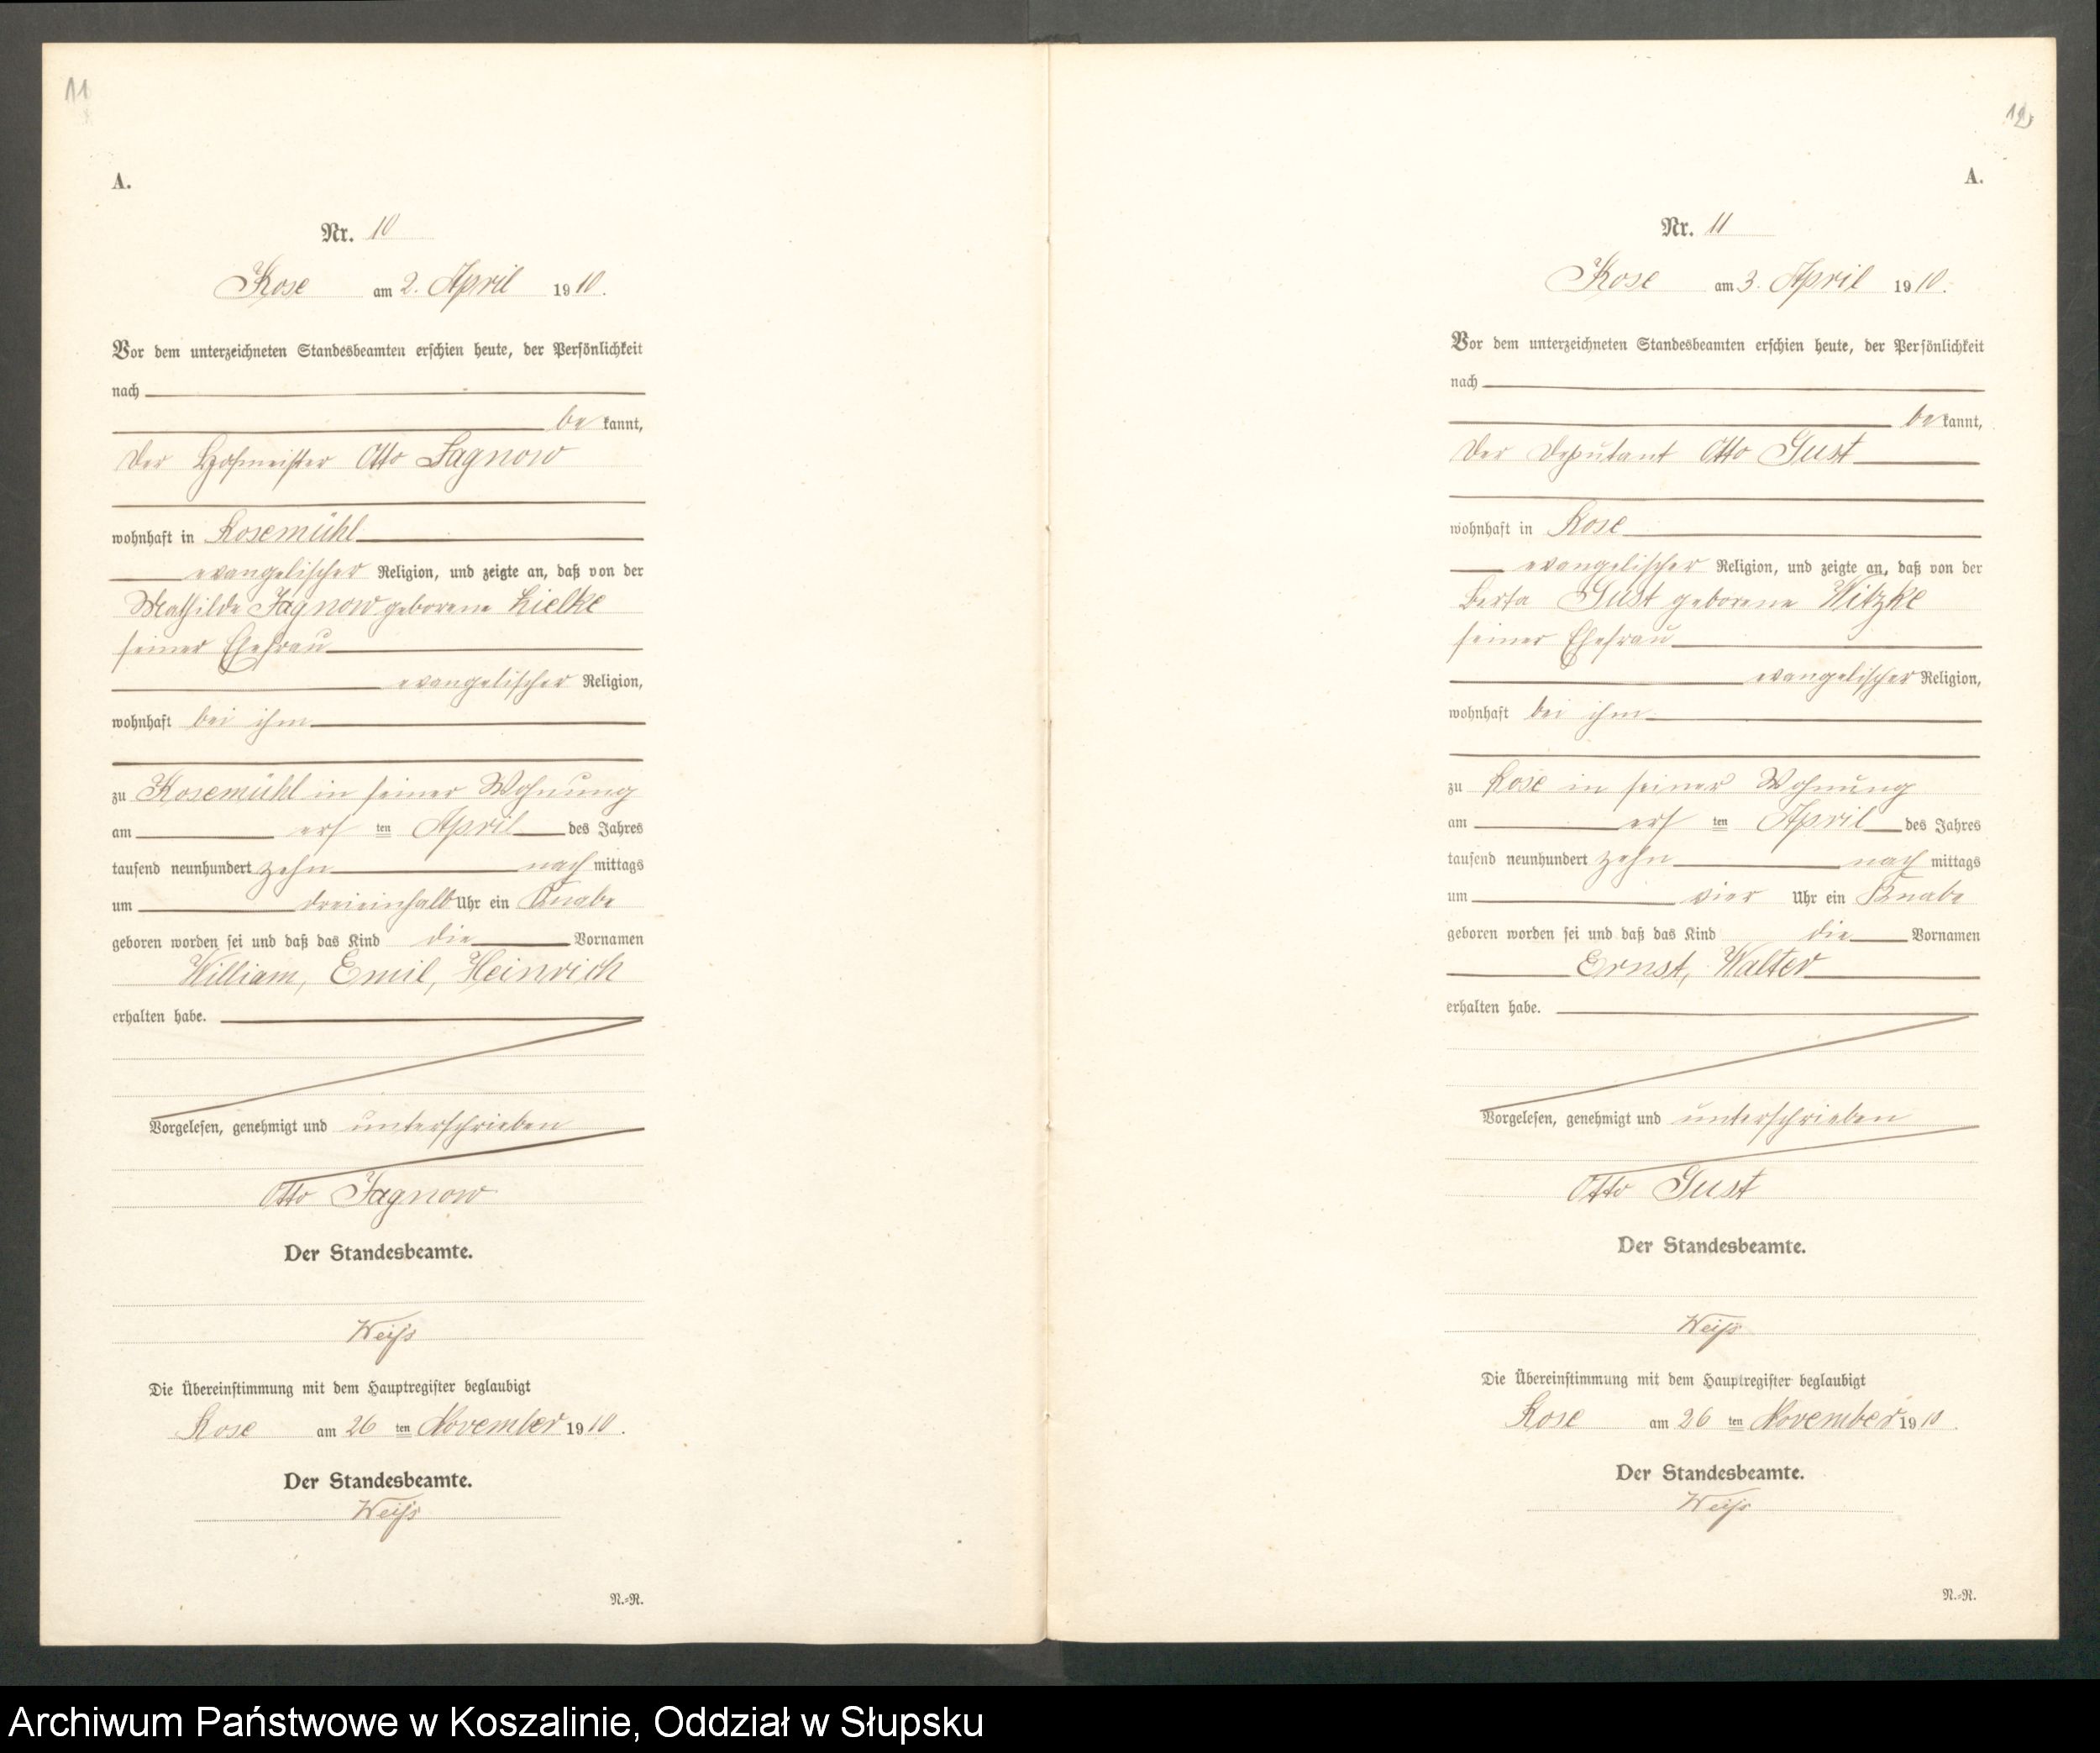 11
A.
Nr. 10
Rose am 2. April 1910.
Vor dem unterzeichneten Standesbeamten erschien heute, der Persönlichkeit
nach
be kannt,
der Hofmeister Otto Jagnow
wohnhaft in Rosemühl
evangelischer Religion, und zeigte an, daß von der
Mathilde Jagnow geborene Lielke
seiner Ehefrau
evangelischer Religion,
wohnhaft bei ihm
zu Rosemühl in seiner Wohnung
am ers ten April des Jahres
tausend neunhundert zehn nach mittags
um dreieinhalb Uhr ein Knabe
geboren worden sei und daß das Kind die Vornamen
William, Emil, Heinrich
erhalten habe.
Vorgelesen, genehmigt und unterschrieben
Otto Jagnow
Der Standesbeamte.
Weiß
Die Übereinstimmung mit dem Hauptregister beglaubigt
Rose am 26 ten November 1910.
Der Standesbeamte.
Weiß
N.=R.
12
A.
Nr. 11
Rose am 3. April 1910.
Vor dem unterzeichneten Standesbeamten erschien heute, der Persönlichkeit
nach
be kannt,
der Deputant Otto Gust
wohnhaft in Rose
evangelischer Religion, und zeigte an, daß von der
Berta Gust geborene Witzke
seiner Ehefrau
evangelischer Religion,
wohnhaft bei ihm
zu Rose in seiner Wohnung
am ers ten April des Jahres
tausend neunhundert zehn nach mittags
um vier Uhr ein Knabe
geboren worden sei und daß das Kind die Vornamen
Ernst, Walter
erhalten habe.
Vorgelesen, genehmigt und unterschrieben
Otto Gust
Der Standesbeamte.
Weiß
Die Übereinstimmung mit dem Hauptregister beglaubigt
Rose am 26 ten November 1910.
Der Standesbeamte.
Weiß
N.=R.
Archiwum Państwowe w Koszalinie, Oddział w Słupsku